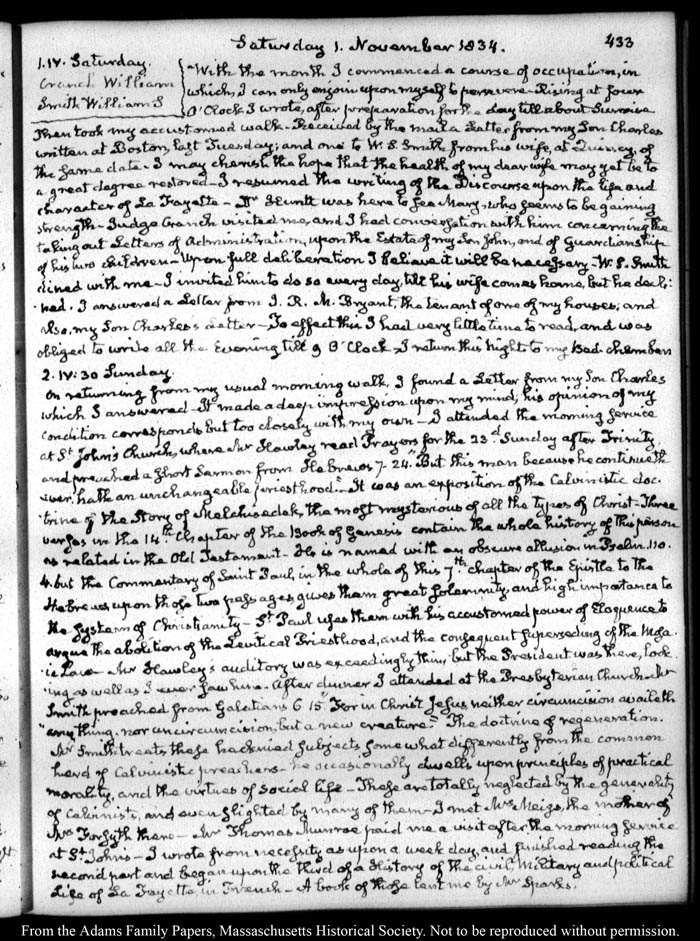 Saturday 1. November 1834.
433
1. IV. Saturday.
Cranch William
Smith William S
With the month I commenced a course of occupation, in
which, I can only enjoin upon myself to persevere. Rising at four
O'Clock I wrote, after preparation for the day till about Sunrise
Then took my accustomed walk - Received by the mail a Letter from my Son Charles
written at Boston, last Tuesday; and one to W. S. Smith from his wife, at Quincy, of
the same date - I may cherish the hope that the health of my dear wife may yet be to
a great degree restored - I resumed the writing of the Discourse upon the life and
character of La Fayette - Dr. Huntt was here to see Mary, who seems to be gaining
strength - Judge Cranch visited me, and I had conversation with him concerning the
taking out Letters of Administration, upon the Estate of my Son John, and of Guardianship
of his two children - Upon full deliberation I believe it will be necessary - W. S. Smith
dined with me - I invited him to do so every day, till his wife comes home, but he decli-
ned. I answered a Letter from J. R. M. Bryant, the tenant of one of my houses; and
also, my Son Charles's Letter - To effect this I had very little time to read, and was
obliged to write all the Evening till 9 O'Clock - I return this night to my bed-chamber
2. IV: 30 Sunday.
On returning from my usual morning walk, I found a Letter from my Son Charles
which I answered - It made a deep impression upon my mind; his opinion of my
condition corresponds but too closely with my own - I attended the morning service
at St. John's Church, where Mr Hawley read Prayers for the 23d. Sunday after Trinity,
and preached a short Sermon from Hebrews 7. 24. "But this man because he continueth
ever, hath an unchangeable priesthood" - It was an exposition of the Calvinistic doc-
trine of the Story of Melchisedek, the most mysterious of all the types of Christ - Three
verses in the 14th. Chapter of the Book of Genesis contain the whole history of this person
as related in the Old Testament - He is named with an obscure allusion in Psalm. 110.
4. but the Commentary of Saint Paul, in the whole of this 7th. chapter of the Epistle to the
Hebrews upon those two passages, gives them great solemnity, and high importance to
the System of Christianity - St. Paul uses them with his accustomed power of Eloquence to
argue the abolition of the Levitical Priesthood, and the consequent superseding of the Mosa-
ic Law - Mr Hawley's auditory was exceedingly thin, but the President was there, look-
ing as well as I ever saw him. After dinner I attended at the Presbyterian Church - Mr
Smith preached from Galatians 6. 15. "For in Christ Jesus neither circumcision availeth
any thing, nor uncircumcision, but a new creature." The doctrine of regeneration.
Mr Smith treats these hacknied subjects somewhat differently from the common
herd of Calvinistic preachers - he occasionally dwells upon principles of practical
morality, and the virtues of social life - These are totally neglected by the generality
of Calvinists, and even slighted by many of them - I met Mrs Meigs, the mother of
Mrs Forsyth there - Mr Thomas Munroe paid me a visit after the morning service
at St. Johns - I wrote from necessity as upon a week day, and finished reading the
second part and began upon the third of a History of the civil, Military and political
Life of La Fayette, in French - A book of those lent me by Mr Sparks.
From the Adams Family Papers, Massachusetts Historical Society. Not to be reproduced without permission.